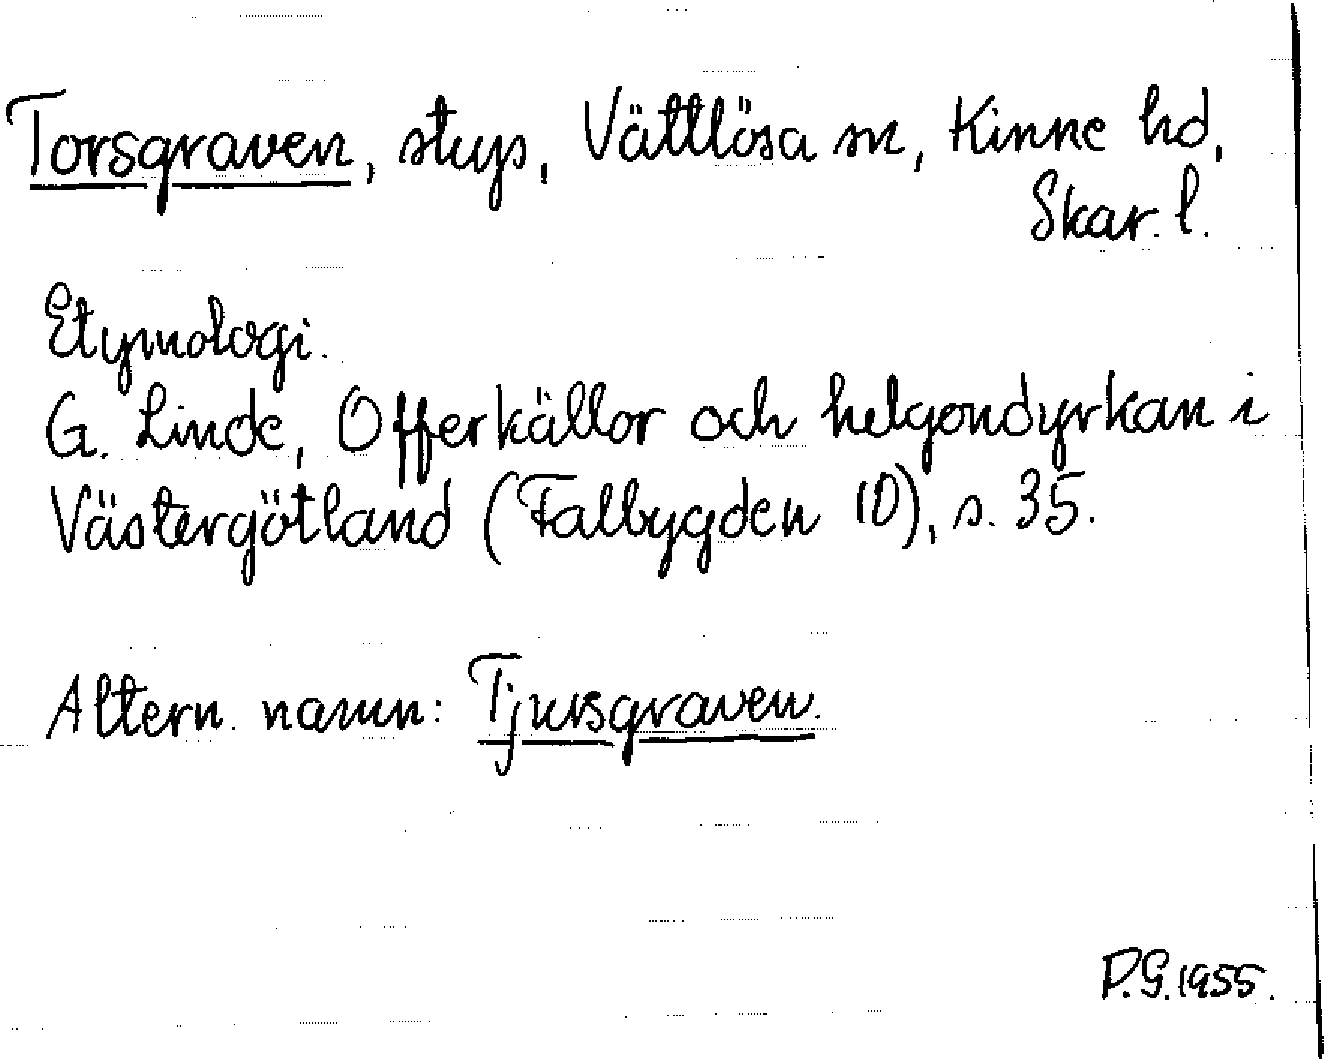 Torsgraven, stup, Vättlösa sn, Kinne hd,
Skar. l.
Etymologi.
G. Linde, Offerkällor och helgondyrkan i
Västergötland (Falbygden 10), s. 35.
Altern. namn: Tjursgraven.
P.G. 1955.